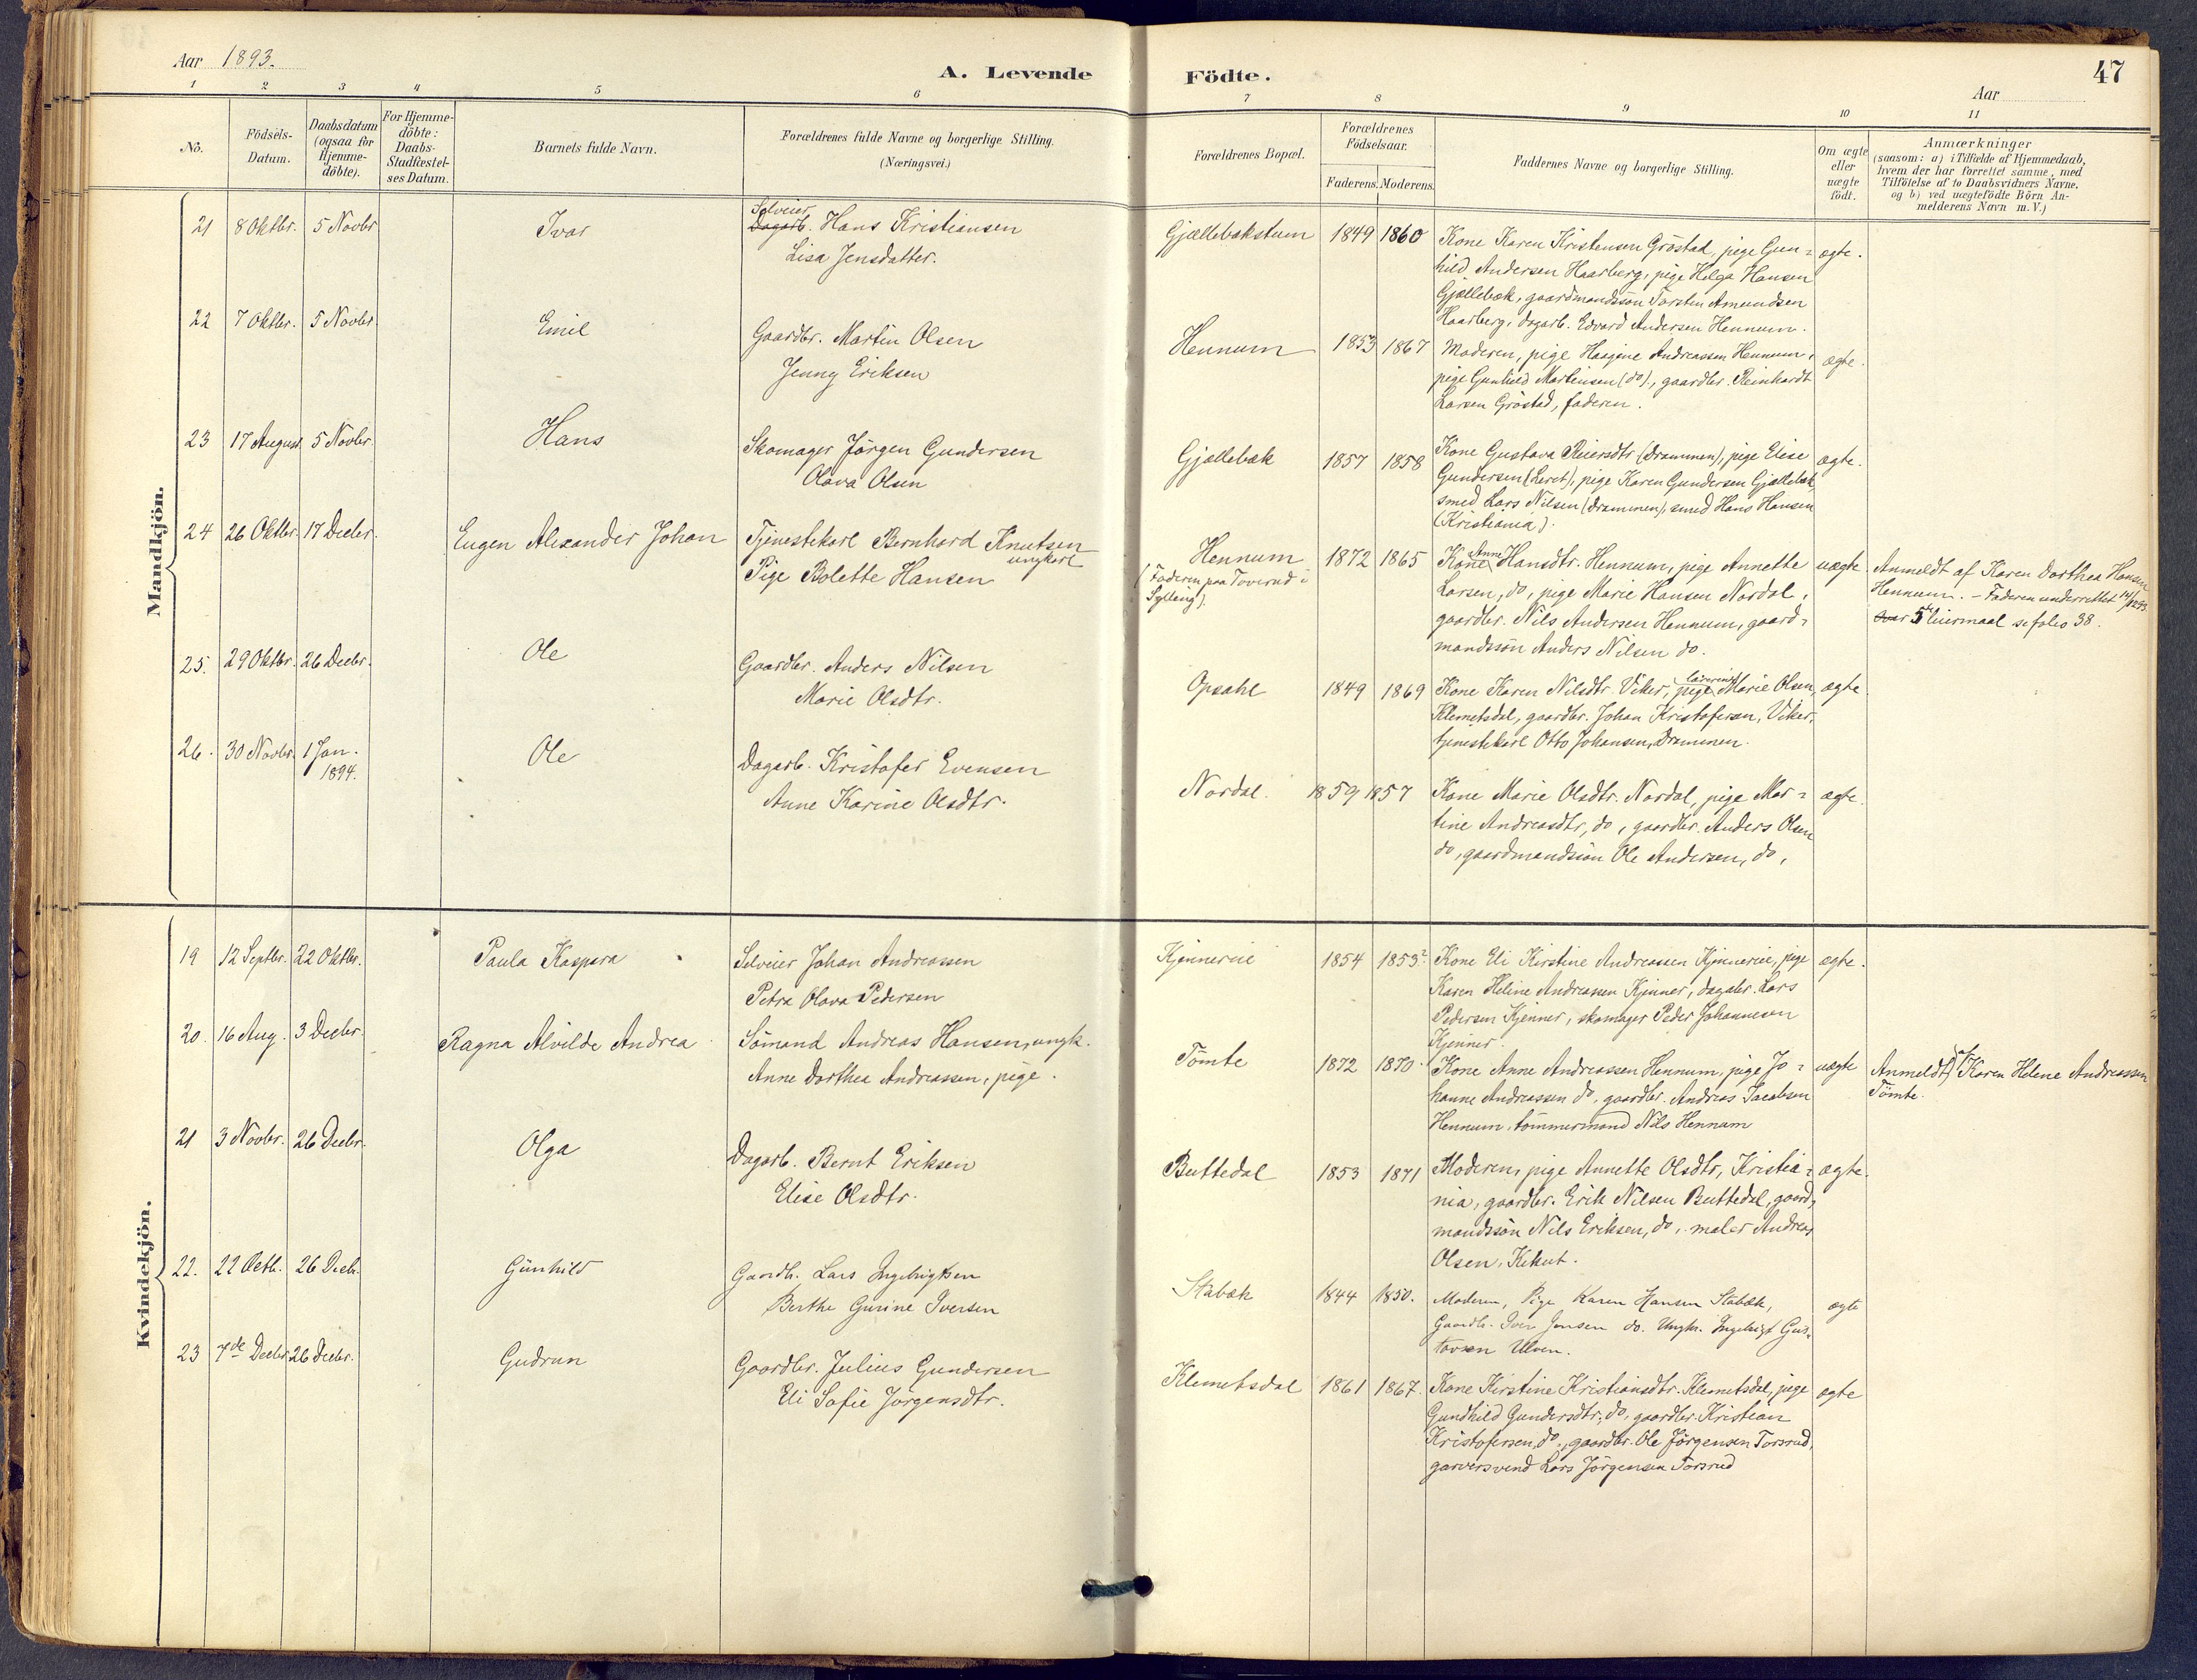 Aar 1893.
A. Levende Födte.
47
Aar
1 2 3 4 5 6 7 8 9 10 11
No.
Födsels-
Datum.
Daabsdatum
(ogsaa for
Hjemme-
döbte).
For Hjemme-
döbte:
Daabs-
Stadfæstel-
ses Datum.
Barnets fulde Navn.
Forældrenes fulde Navne og borgerlige Stilling.
(Næringsvei.)
Forældrenes Bopæl.
Forældrenes
Födselsaar.
Faderens. Moderens.
Faddernes Navne og borgerlige Stilling.
Om ægte
eller
uægte
födt.
Anmærkninger
(saasom: a) i Tilfælde af Hjemmedaab,
hvem der har forrettet samme, med
Tilföielse af to Daabsvidners Navne.
og b) ved uægtefödte Börn An-
melderens Navn m. V.)
Mandkjön.
21 8 Oktbr. 5 Novbr Ivar
Selveier
Dagarb. Hans Kristiansen
Lisa Jensdatter.
Gjællebækstum 1849 1860
Kone Karen Kristensen Gröstad, pige Gun=
hild Andersen Haarberg, pige Helga Hansen
Gjællebæk, gaardmandssön Torsten Amundsen
Haarberg, dagarb. Edvard Andersen Hennum.
ægte.
22 7 Oktbr. 5 Novbr Emil
Gaardbr. Martin Olsen
Jenny Eriksen
Hennum 1853 1867
Moderen, pige Haagine Andreassen Hennum,
pige Gunhild Martinsen (do), gaardbr. Reinhardt
Larsen Gröstad, faderen.
ægte.
23 17 August 5 Novbr. Hans
Skomager Jörgen Gundersen
Olava Olsen
Gjællebæk 1857 1858
Kone Gustava Reiersdtr (Drammen), pige Elise
Gundersen (Leret), pige Karen Gundersen Gjællebæk,
smed Lars Nilsen (Drammen), smed Hans Hansen
(Kristiania).
ægte.
24 26 Oktbr. 17 Decbr. Eugen Alexander Johan
Tjenestekarl Bernhard Knutsen
ungkarl
Pige Bolette Hansen
Hennum
(Faderen paa Toverud i
Sylling).
1872 1865
Kone Anne Hansdtr. Hennum, pige Annette
Larsen, do, pige Marie Hansen Nordal,
gaardbr. Nils Andersen Hennum, gaard=
mandssön Anders Nilsen do.
uægte
Anmeldt af Karen Dorthea Hansen
Hennum. - Faderen underrettet 14/12 93.
5te leiermaal se folio 38.
25. 29 Oktbr. 26 Decbr. Ole
Gaardbr. Anders Nilsen
Marie Olsdtr.
Opsahl 1849 1869
Kone Karen Nilsdtr. Viker, pige lærerinde Marie Olsen,
Klemetsdal, gaardbr. Johan Kristofersen, Viker,
tjenestekarl Otto Johansen, Drammen.
ægte
26. 30 Novbr. 1 Jan.
1894.
Ole
Dagarb. Kristofer Evensen
Anne Karine Olsdtr.
Nordal. 1859 1857
Kone Marie Olsdtr. Nordal, pige Mar=
tine Andreasdtr, do, gaardbr. Anders Olsen
do, gaardmandssön Ole Andersen, do,
ægte.
Kvindekjön.
19 12 Septbr. 22 Oktbr. Paula Kaspara
Selveier Johan Andreassen
Petra Olava Pedersen
Kjinnereie 1854 1853?
Kone Eli Kirstine Andreassen Kjinnereie, pige
Karen Heline Andreassen Kjenner, dagabr. Lars
Pedersen Kjenner, skomager Peder Johannesen
Kjenner.
ægte.
20. 16 Aug. 3 Decbr. Ragna Alvilde Andrea
Sömand Andreas Hansen, ungk.
Anne Dorthea Andreassen, pige.
Tömte 1872 1870.
Kone Anne Andreassen Hennum, pige Jo=
hanne Andreassen do, gaardbr. Andreas Jacobsen
Hennum, tömmermand Nils Hennum
uægte
Anmeldt af Karen Helene Andreassen
Tömte.
21 3 Novbr. 26 Decbr. Olga
Dagarb. Bernt Eriksen
Elise Olsdtr.
Buttedal 1853 1871
Moderen, pige Annette Olsdtr, Kristia=
nia, gaardbr. Erik Nilsen Buttedal, gaard=
mandssön Nils Eriksen, do, maler Andreas
Olsen, Kikut.
ægte.
22. 22 Octb. 26 Decb. Gunhild
Gaardb. Lars Ingebrigtsen
Berthe Gurine Iversen
Stabæk 1844 1850.
Moderen, Pige Karen Hansen Stabæk,
Gaardb. Iver Jensen do. Ungk. Ingebrigt Gus=
tavsen Ulven.
ægte
23 7de Decbr. 26 Decbr. Gudrun
Gaardbr. Julius Gundersen
Eli Sofie Jörgensdtr.
Klemetsdal 1861 1867.
Kone Kirstine Kristiansdtr. Klemetsdal, pige
Gundhild Gundersdtr, do, gaardbr. Kristian
Kristofersen, do, gaardbr. Ole Jörgensen Torsrud,
garversvend Lars Jörgensen Torsrud
ægte